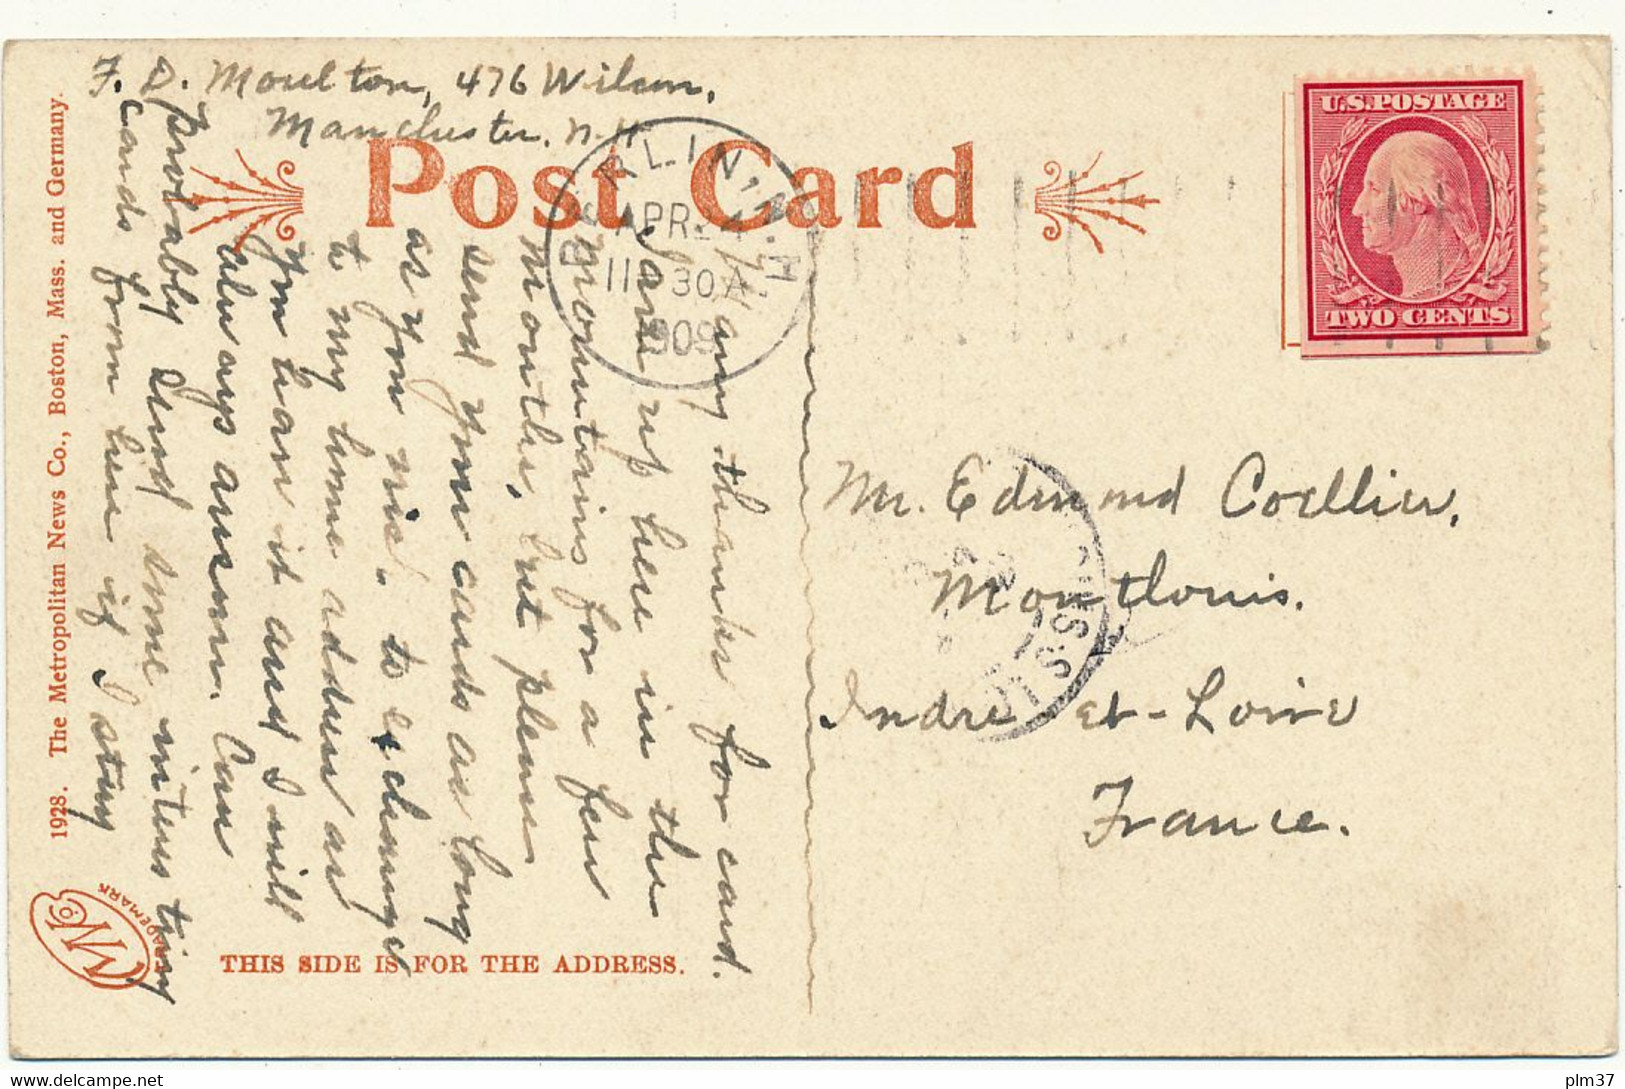 F. D. Moulton, 476 Wilson,
Manchester. N.H.
Post Card
BERLIN, N.H.
APR 24
11 30 A
1909
U.S. POSTAGE
TWO CENTS
Many thanks for card.
I am up here in the
mountains for a few
months, but please
send your cards as long
as you wish to exchange
to my home address as
you have it and I will
always answer. Can
probably send some interesting
cards from here if I stay
Mr. Edmond Coellier,
Montlouis.
Indre et-Loire
France.
1928. The Metropolitan News Co., Boston, Mass. and Germany.
TRADEMARK
THIS SIDE IS FOR THE ADDRESS.
plm37